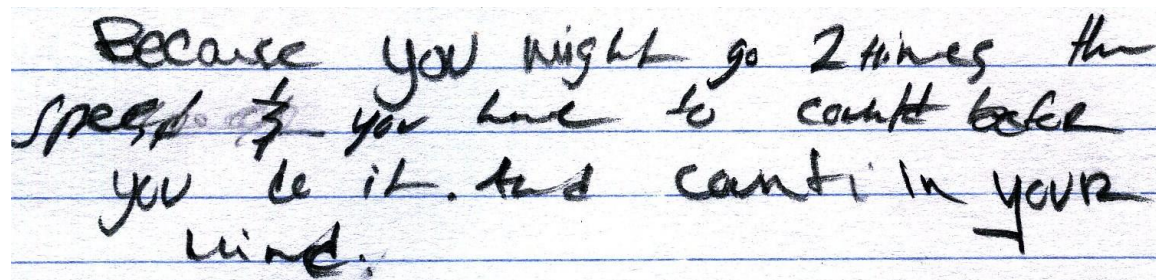 Because you might go 2 times the
speed & you have to count before
you do it. And count in your
mind.